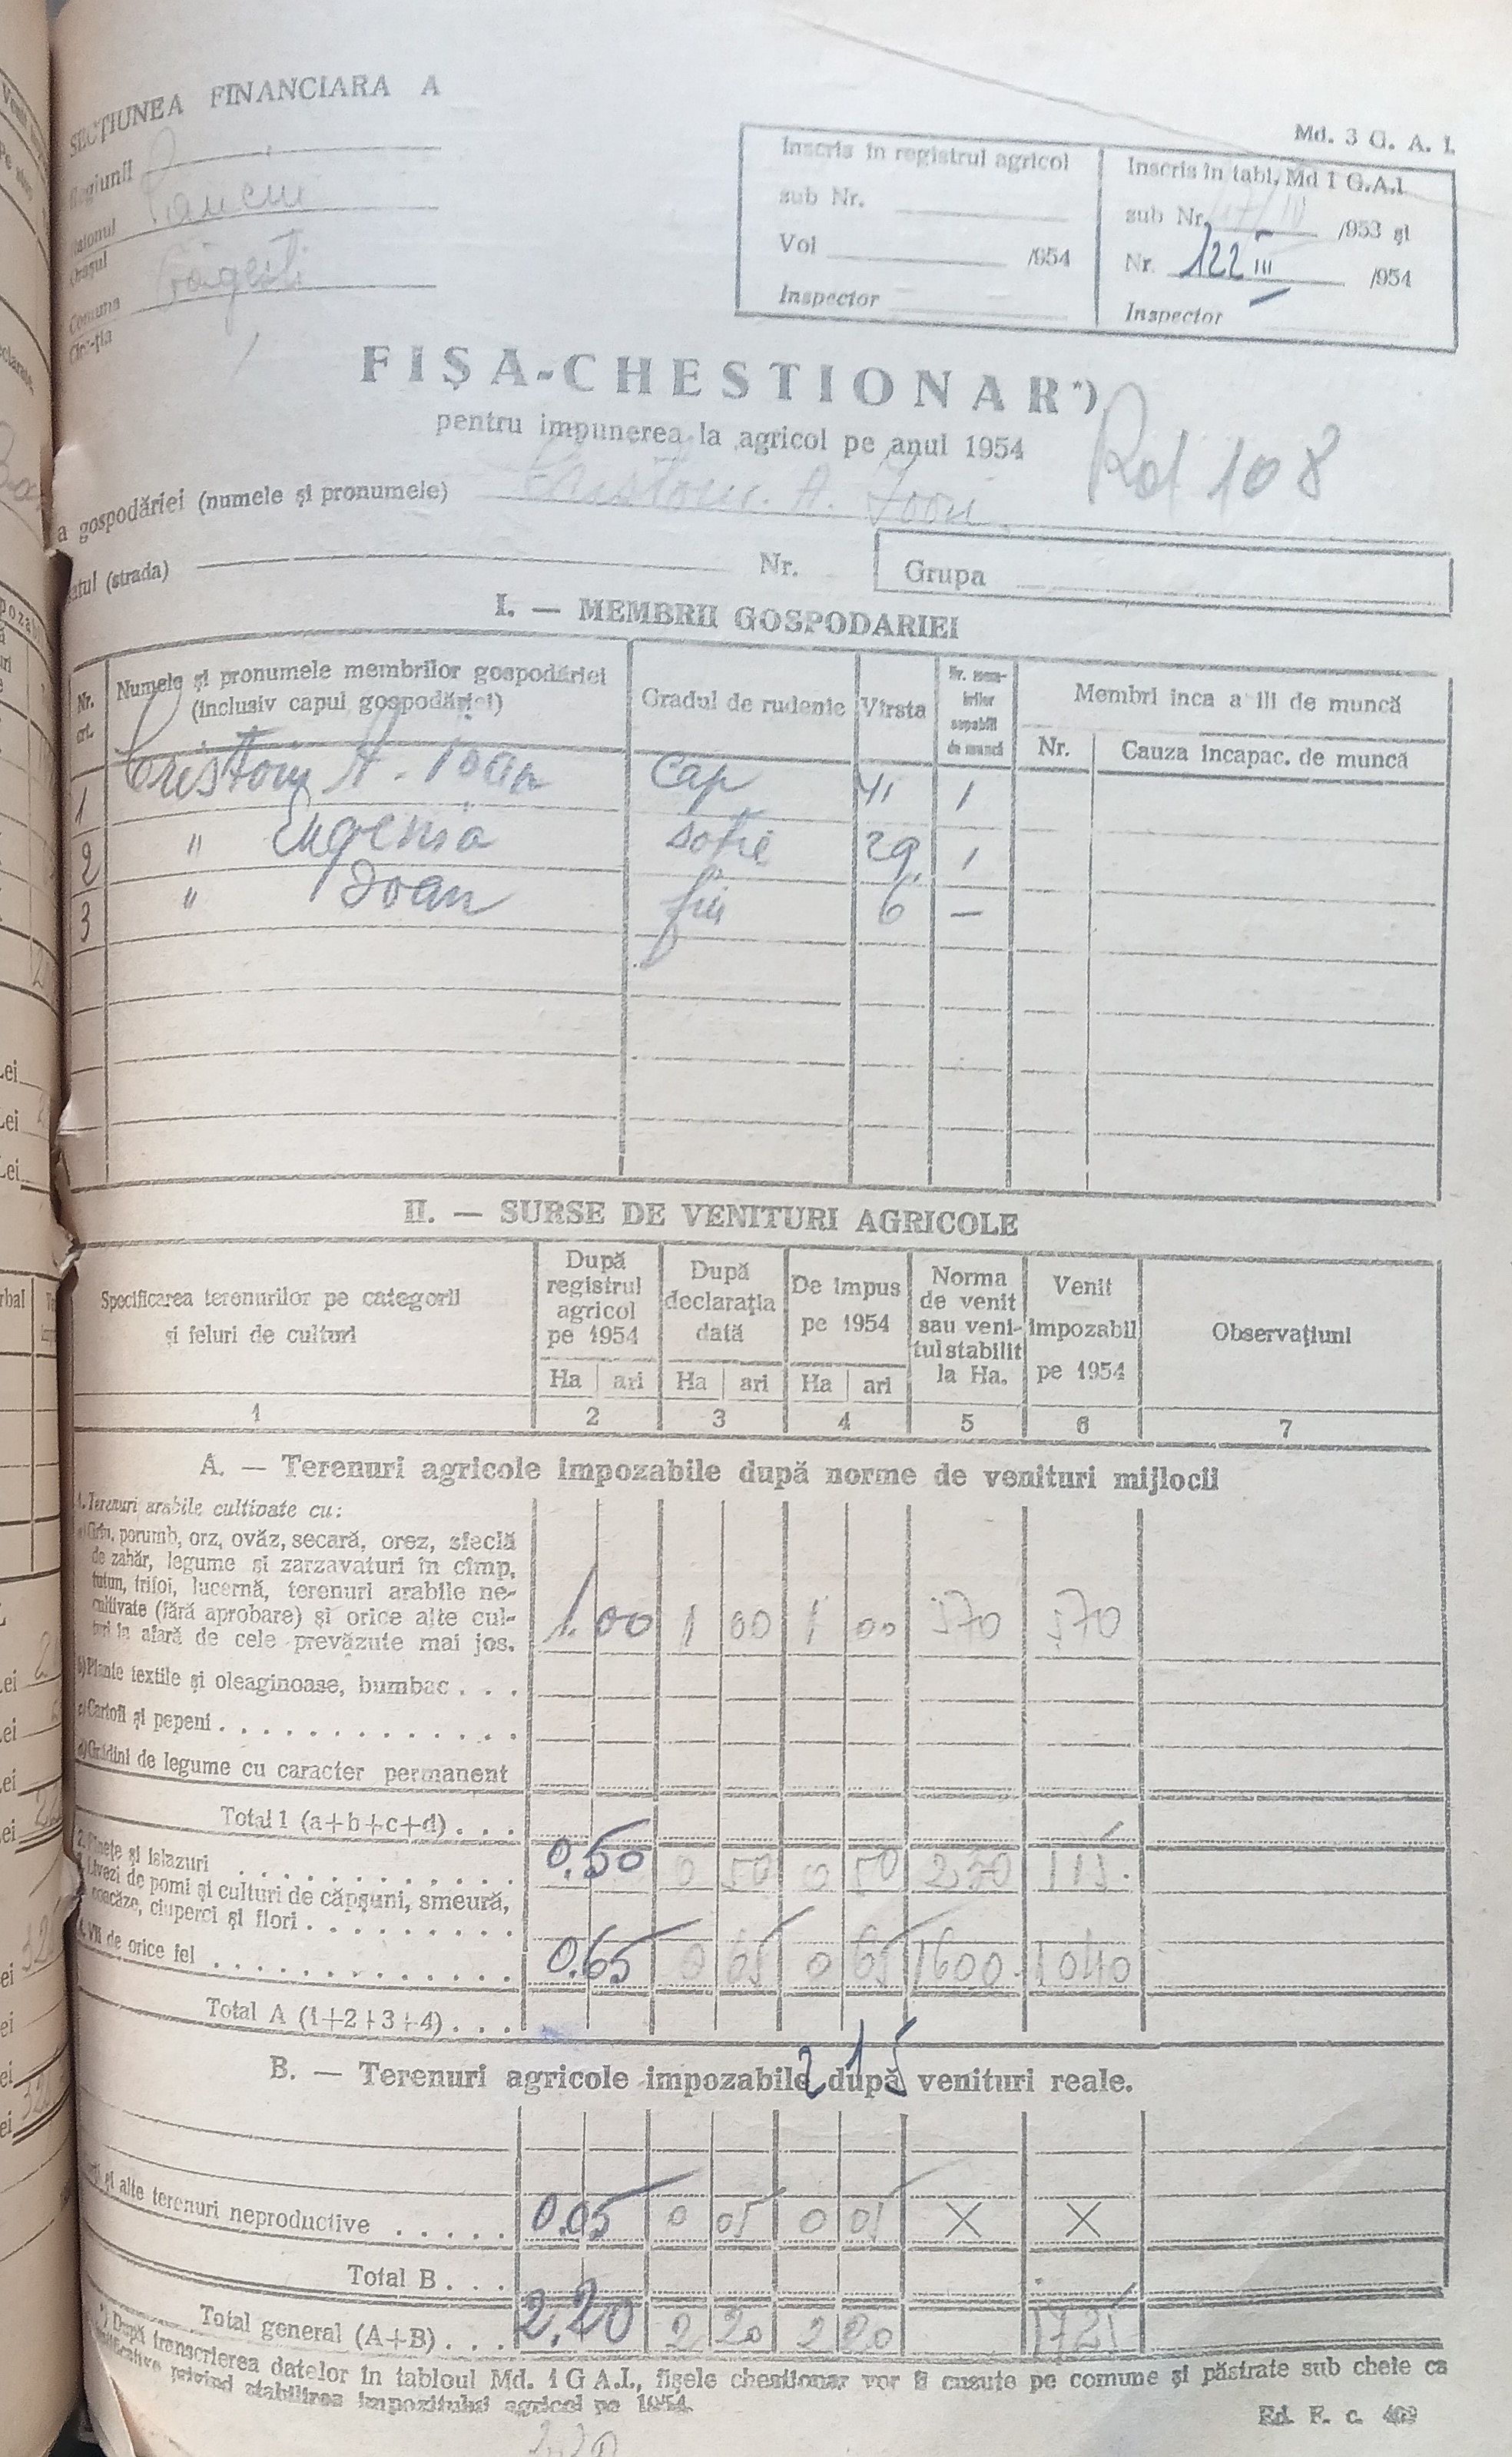 SECȚIUNEA FINANCIARA A
Md. 3 G. A. I.
Regiunii
Raionul Panciu
Orașul
Comuna Găgești
Circ-ția
Inscris în registrul agricol
sub Nr.
Vol /954
Inspector
Inscris în tabl. Md 1 G.A.I
sub Nr. /953 și
Nr. 122 III /954
Inspector
FIȘA-CHESTIONAR*)
pentru impunerea la agricol pe anul 1954
Rol 108
a gospodăriei (numele și pronumele) Cristoiu A. Ioan
atul (strada) Nr.
Grupa
I. — MEMBRII GOSPODARIEI
Nr. crt.
Numele și pronumele membrilor gospodăriei
(inclusiv capul gospodăriei)
Gradul de rudenie
Vîrsta
Nr. mem-
brilor
capabili
de muncă
Membri inca a III de muncă
Nr. Cauza incapac. de muncă
1 Cristoiu A. Ioan cap 41 1
2 " Eugenia soție 29 1
3 " Ioan fiu 6 —
II. — SURSE DE VENITURI AGRICOLE
Specificarea terenurilor pe categorii
și feluri de culturi
După
registrul
agricol
pe 1954
După
declarația
dată
De impus
pe 1954
Norma
de venit
sau veni-
tul stabilit
la Ha.
Venit
impozabil
pe 1954
Observațiuni
Ha ari Ha ari Ha ari
1 2 3 4 5 6 7
A. — Terenuri agricole impozabile după norme de venituri mijlocii
1. Terenuri arabile cultivate cu:
a) Grîu, porumb, orz, ovăz, secară, orez, sfeclă
de zahăr, legume și zarzavaturi în cîmp,
tutun, trifoi, lucernă, terenuri arabile ne-
cultivate (fără aprobare) și orice alte cul-
turi în afară de cele prevăzute mai jos. 1.00 1 00 1 00 570 570
b) Plante textile și oleaginoase, bumbac . . .
c) Cartofi și pepeni . . . . . . . . . . . .
d) Grădini de legume cu caracter permanent
Total 1 (a+b+c+d) . . .
2. Fînețe și islazuri . . . . . . . . . . . 0.50 0 50 0 50 230 115
3. Livezi de pomi și culturi de căpșuni, smeură,
coacăze, ciuperci și flori . . . . . . . . .
4. Vii de orice fel . . . . . . . . . . . . . 0.65 0 65 0 65 1600 1040
Total A (1+2+3+4) . . .
2 15
B. — Terenuri agricole impozabile după venituri reale.
și alte terenuri neproductive . . . . . 0.05 0 05 0 05 X X
Total B . . .
Total general (A+B) . . . 2.20 2 20 2 20 1725
*) După transcrierea datelor în tabloul Md. 1 G A.I., fișele chestionar vor fi cusute pe comune și păstrate sub cheie ca
justificative privind stabilirea impozitului agricol pe 1954.
Ed. F. c. 409
220